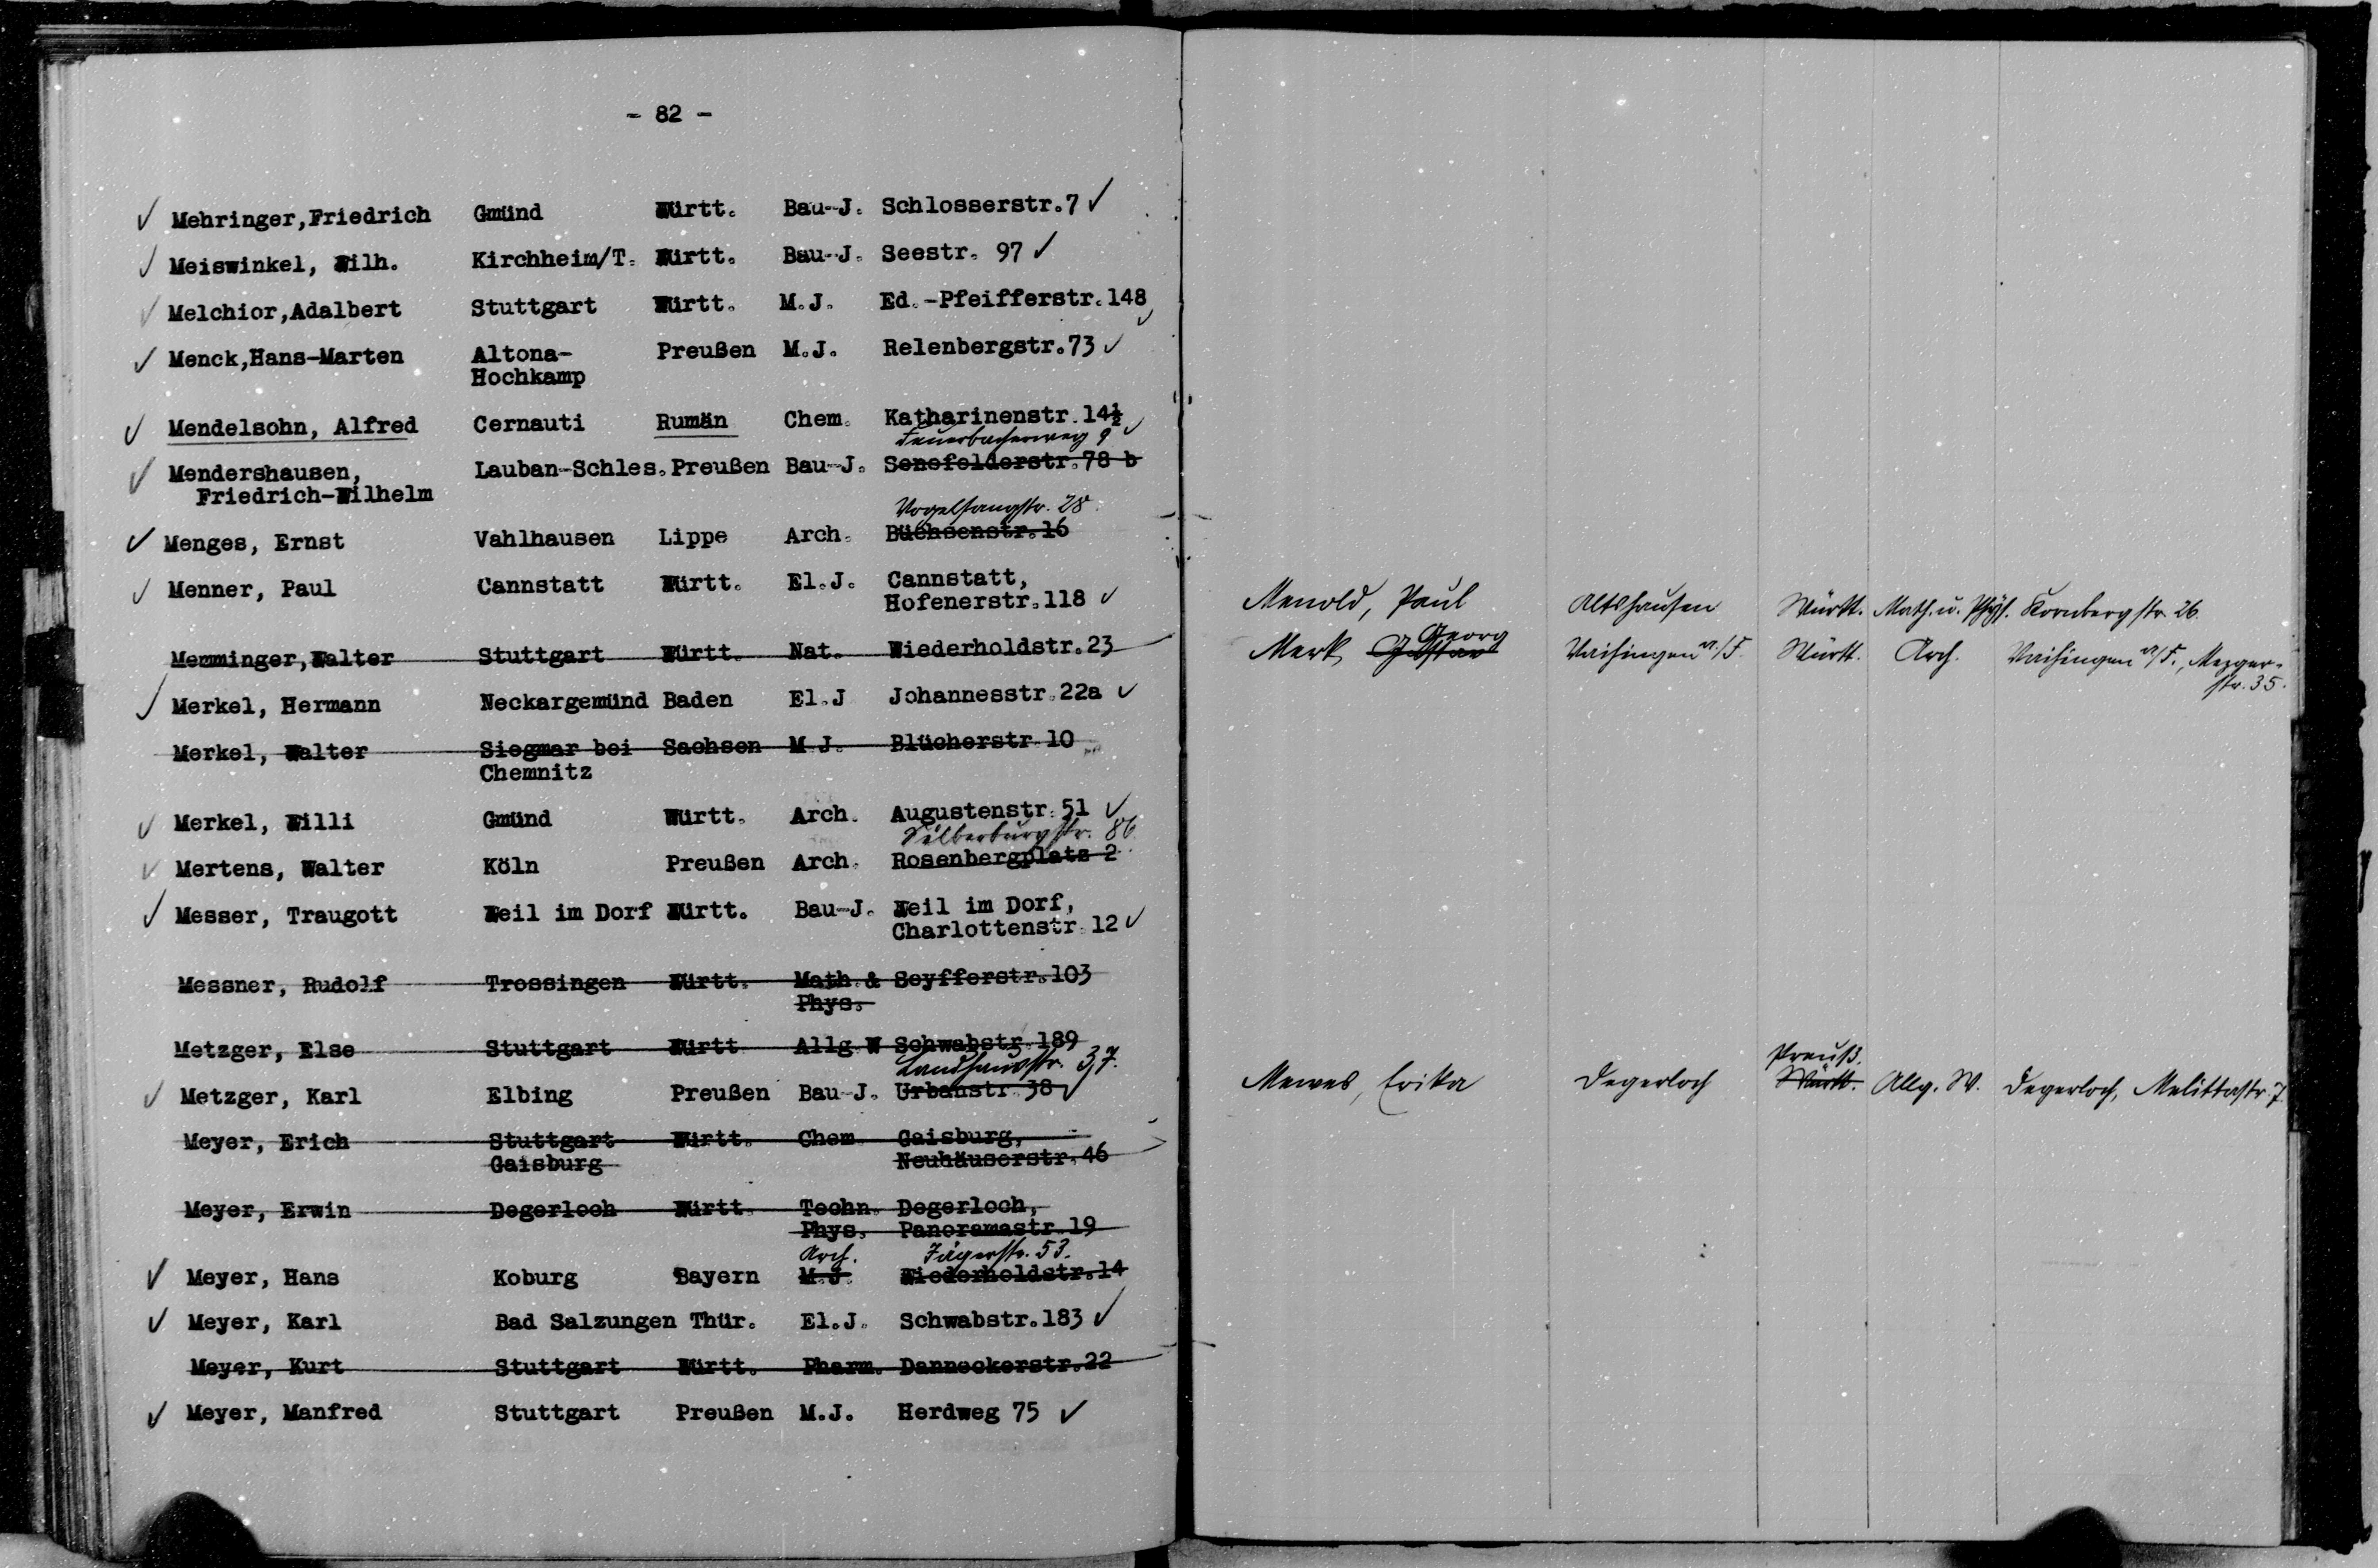 - 82 -
Mehringer,Friedrich Gmünd Württ. Bau-J. Schlosserstr.7
Meiswinkel, Wilh. Kirchheim/T. Württ. Bau-J. Seestr. 97
Melchior,Adalbert Stuttgart Württ. M.J. Ed.-Pfeifferstr.148
Menck,Hans-Marten Altona- Preußen M.J. Relenbergstr.73
Hochkamp
Mendelsohn, Alfred Cernauti Rumän Chem. Katharinenstr.14½
Feuerbacherweg 9
Mendershausen, Lauban-Schles. Preußen Bau-J. Senefelderstr.78 b
Friedrich-Wilhelm
Vogelsangstr. 28.
Menges, Ernst Vahlhausen Lippe Arch. Büchsenstr.16
Menner, Paul Cannstatt Württ. El.J. Cannstatt,
Hofenerstr.118
Memminger,Walter Stuttgart Württ. Nat. Wiederholdstr.23
Merkel, Hermann Neckargemünd Baden El.J Johannesstr.22a
Merkel, Walter Siegmar bei Sachsen M J. Blücherstr.10
Chemnitz
Merkel, Willi Gmünd Württ. Arch. Augustenstr.51
Silberburgstr. 86.
Mertens, Walter Köln Preußen Arch. Rosenbergplatz 2
Messer, Traugott Weil im Dorf Württ. Bau-J. Weil im Dorf,
Charlottenstr.12
Messner, Rudolf Trossingen Württ. Math.& Seyfferstr.103
Phys.
Metzger, Else Stuttgart Württ Allg W Schwabstr.189
Landhausstr. 37.
Metzger, Karl Elbing Preußen Bau-J. Urbanstr.38
Meyer, Erich Stuttgart Württ. Chem. Gaisburg,
Gaisburg Neuhäuserstr.46
Meyer, Erwin Degerloch Württ. Techn. Degerloch,
Phys. Panoramastr.19
Arch. Jägerstr. 53.
Meyer, Hans Koburg Bayern M.J. Wiederholdstr.14
Meyer, Karl Bad Salzungen Thür. El.J. Schwabstr.183
Meyer, Kurt Stuttgart Württ. Pharm. Danneckerstr.22
Meyer, Manfred Stuttgart Preußen M.J. Herdweg 75
Menold, Paul Altshausen Württ. Math. u. Phys. Kornbergstr. 26
Georg
Merk, Gustav Vaihingen a/F. Württ. Arch. Vaihingen a/F., Mezger-
str. 35.
Preuß.
Mewes, Erika Degerloch Württ. Allg. W. Degerloch, Melittastr. 7